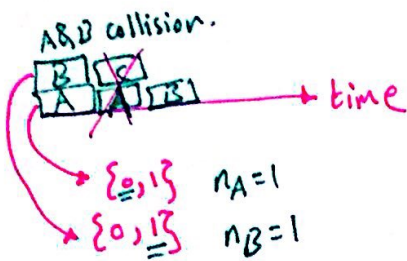 A&B collision.
B C
A A B
time
{0,1} n_A=1
{0,1} n_B=1